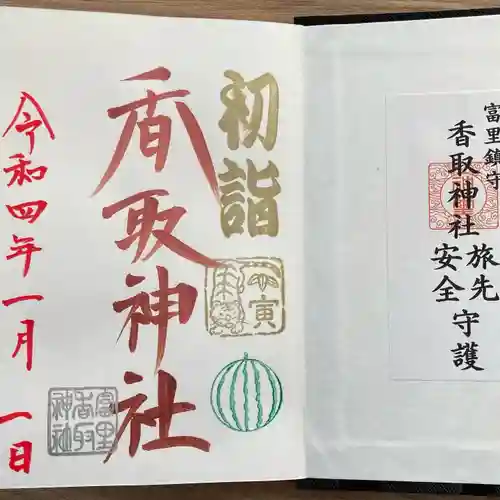 富里鎮守
香取神社
旅先
安全
守護
初詣
寅
香取神社
富里
香取
神社
令和四年一月一日